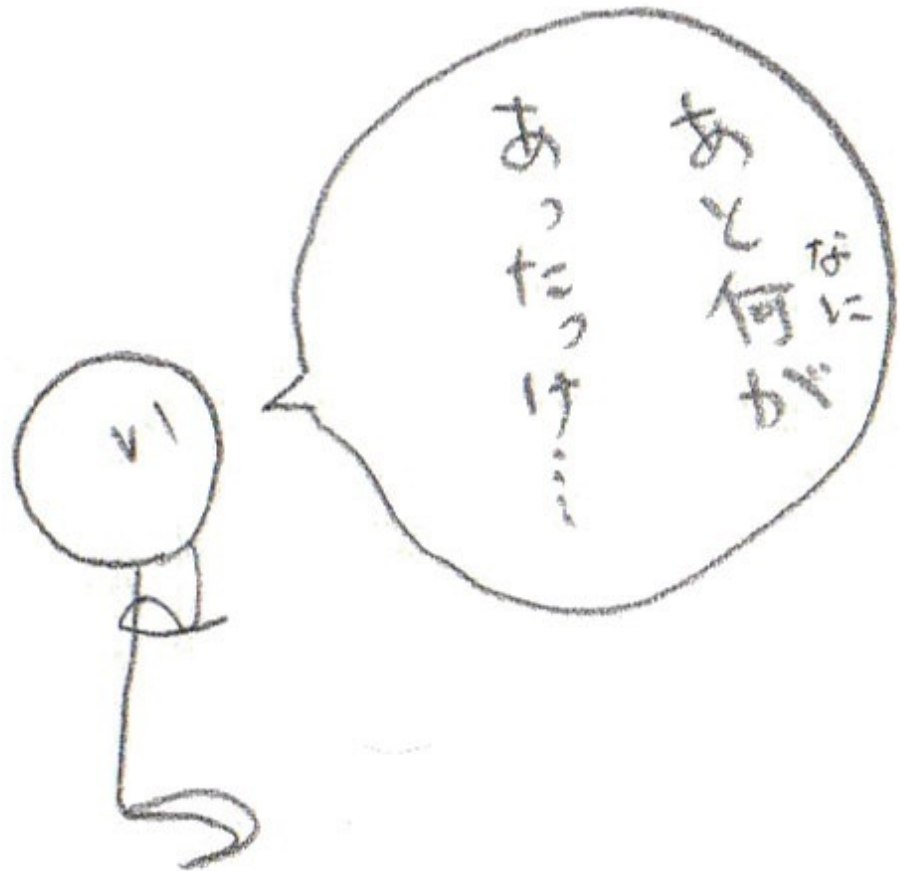 あと何が
なに
あったっけ…